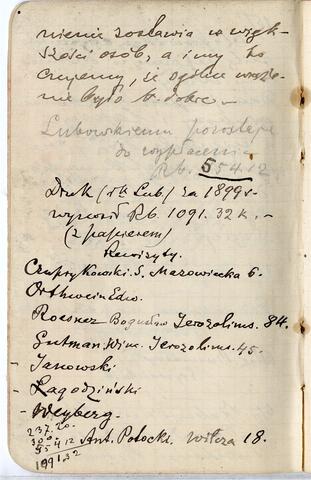 nienie zostawia w więk-
szości osób, a i my to
czujemy, że ogólne wraże-
nie było b. dobre –
Lubowskiemu pozostaje
do wypłacenia
Rb. 554.12
Druk (th Lub) za 1899 r.
wynosił Rb. 1091.32 k. –
(z papierem)
Rewizyty.
Czuprykowski. S. Mazowiecka 6.
Orthwein Edw.
Roesner Bogusław Jerozolims. 84.
Gutman. Winc. Jerozolims. 45.
- Janowski
- Łagodziński
- Weyberg.
237.20.
300
554.12 Ant. Potocki. Wilcza 18.
1091.32